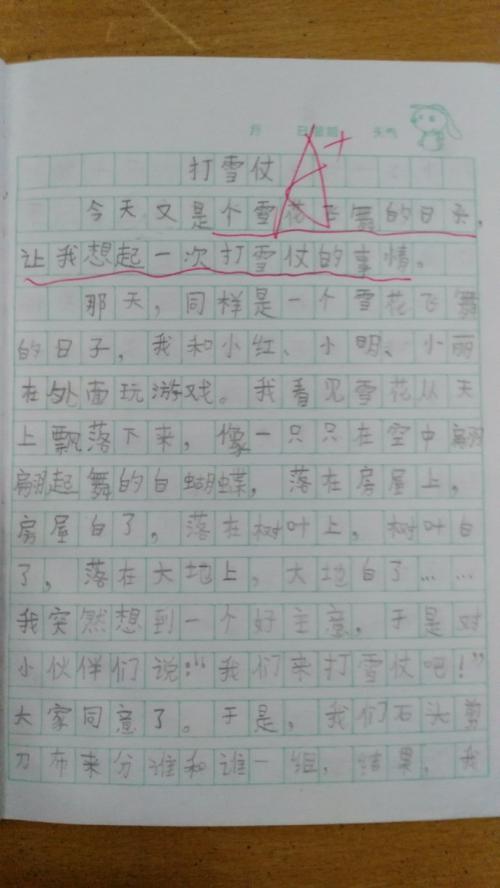 月 日 星期 天气
A+
打雪仗
今天又是个雪花飞舞的日子，
让我想起一次打雪仗的事情。
那天，同样是一个雪花飞舞
的日子，我和小红、小明、小丽
在外面玩游戏。我看见雪花从天
上飘落下来，像一只只在空中翩
翩起舞的白蝴蝶，落在房屋上，
房屋白了，落在树叶上，树叶白
了，落在大地上，大地白了……
我突然想到一个好主意，于是对
小伙伴们说：“我们来打雪仗吧！”
大家同意了。于是，我们石头剪
刀布来分谁和谁一组，结果，我